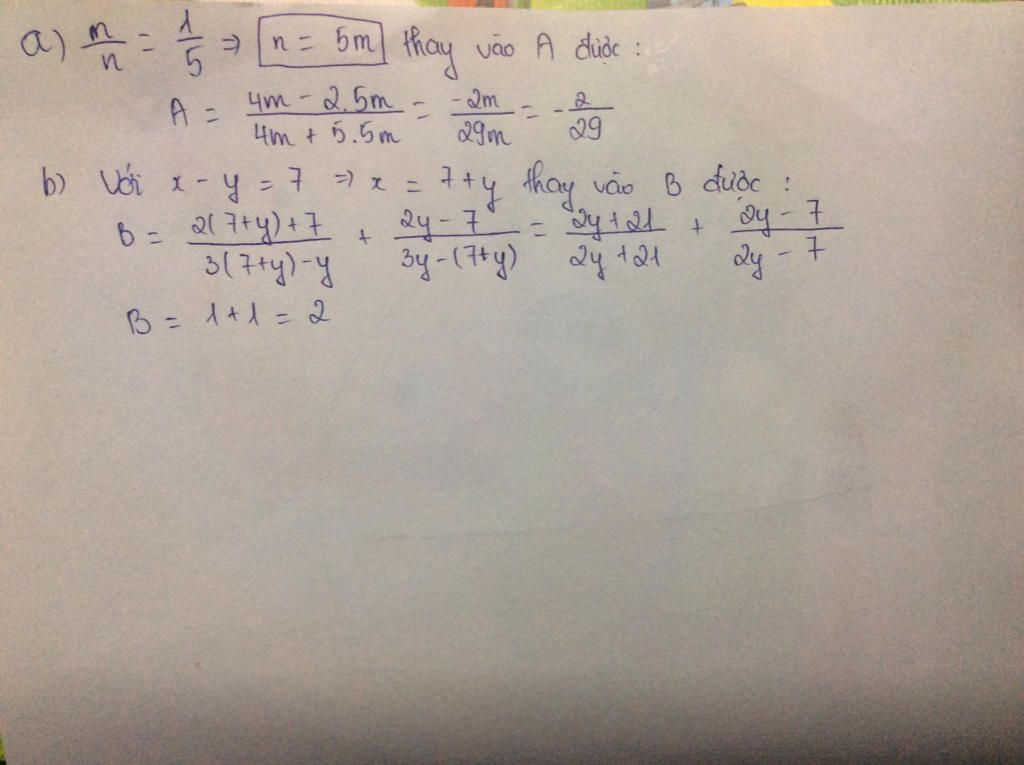 a) m/n = 1/5 => n = 5m thay vào A được :
A = (4m - 2.5m)/(4m + 5.5m) = (-2m)/(29m) = - 2/29
b) Với x - y = 7 => x = 7+y thay vào B được :
B = (2(7+y)+7)/(3(7+y)-y) + (2y - 7)/(3y-(7+y)) = (2y+21)/(2y+21) + (2y - 7)/(2y - 7)
B = 1+1 = 2